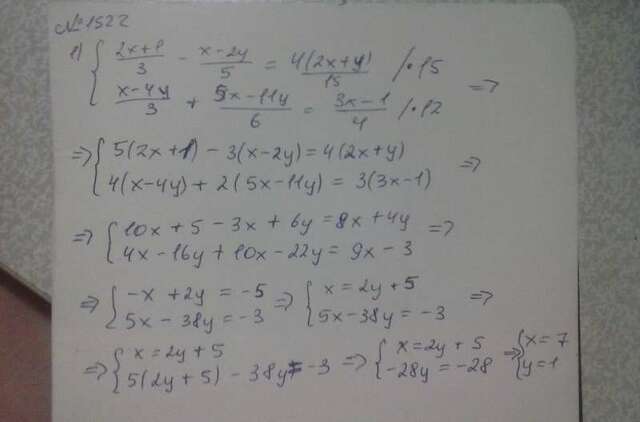 №1522
1) { (2x+1)/3 - (x-2y)/5 = 4(2x+y)/15 /·15
(x-4y)/3 + (5x-11y)/6 = (3x-1)/4 /·12 =>
=> { 5(2x+1) - 3(x-2y) = 4(2x+y)
4(x-4y) + 2(5x-11y) = 3(3x-1) =>
=> { 10x + 5 - 3x + 6y = 8x + 4y =>
4x - 16y + 10x - 22y = 9x - 3
=> { -x + 2y = -5 => { x = 2y + 5 =>
5x - 38y = -3 5x - 38y = -3
=> { x = 2y + 5 => { x = 2y + 5 => { x = 7
5(2y + 5) - 38y = -3 -28y = -28 y = 1